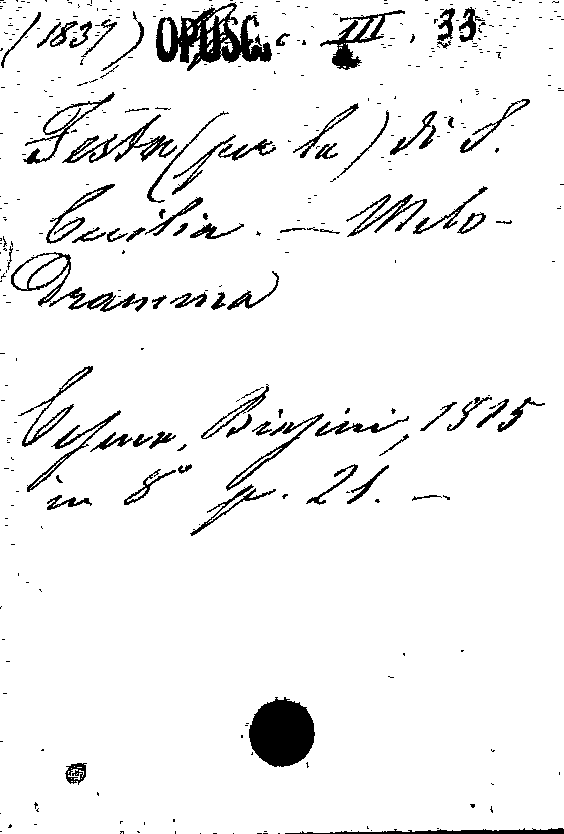 (1839) OPUSC. c. III. 33
Festa (per la) di S.
Cecilia. — Melo-
Dramma
Cesena, Biasini, 1815
in 8° p. 21. —